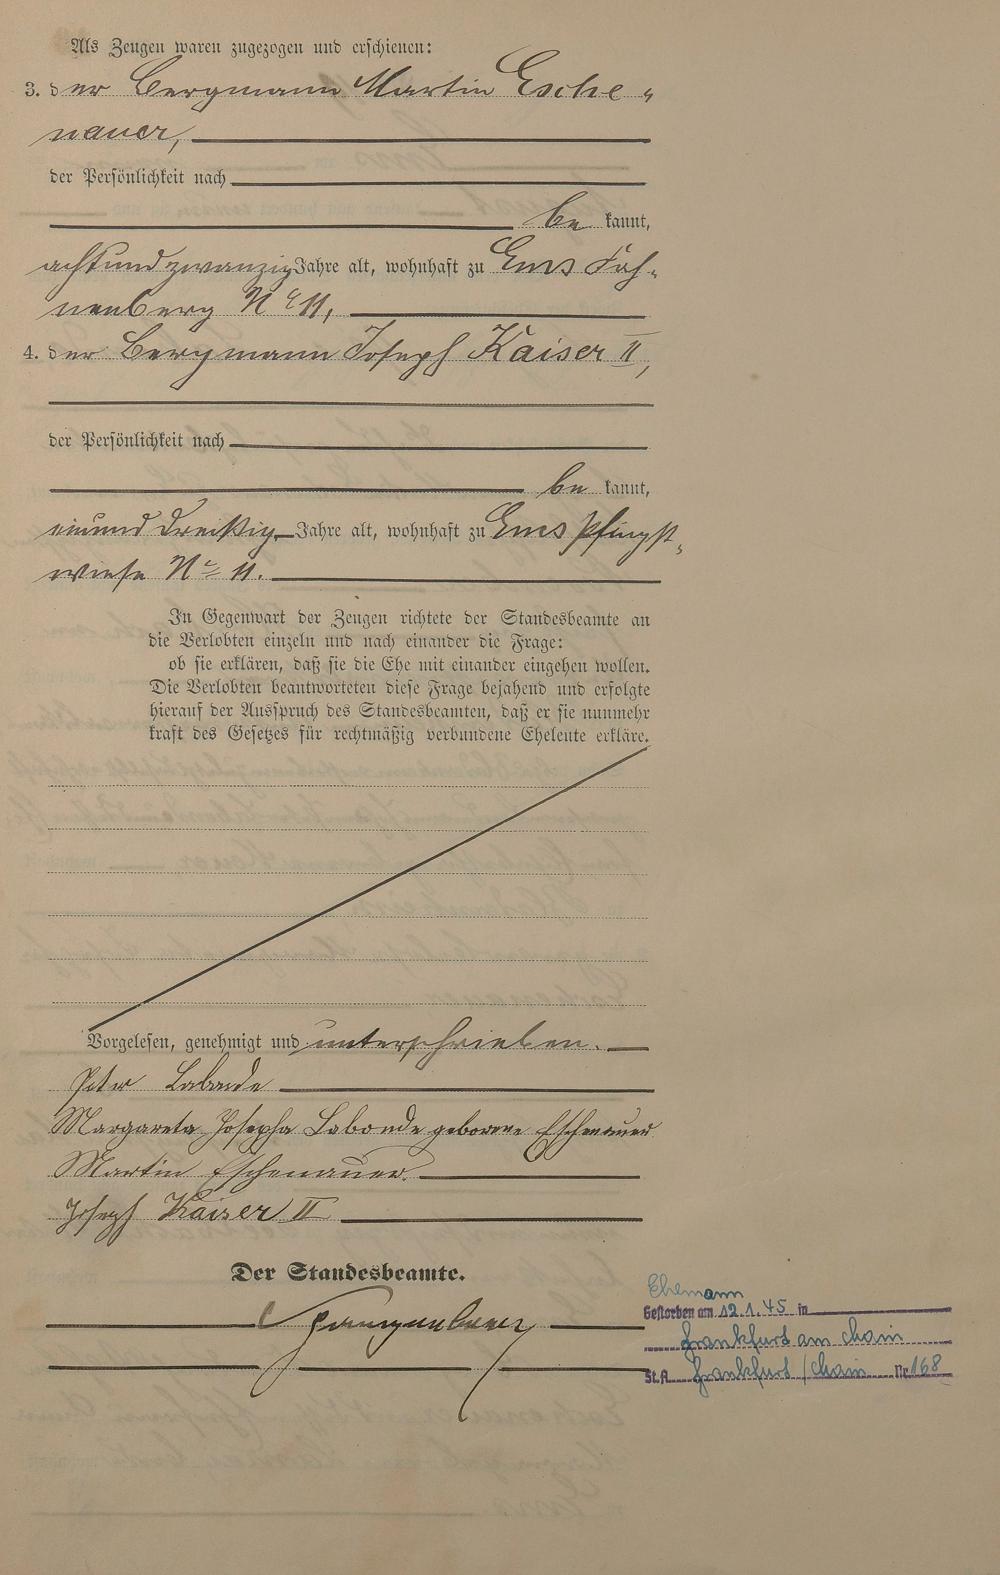 Als Zeugen waren zugezogen und erschienen:
3. der Bergmann Martin Esche-
nauer,
der Persönlichkeit nach
be kannt,
achtundzwanzig Jahre alt, wohnhaft zu Ems Fah-
nenberg No 11,
4. der Bergmann Joseph Kaiser II,
der Persönlichkeit nach
be kannt,
einunddreißig Jahre alt, wohnhaft zu Ems Pfingst-
wiese No 11.
In Gegenwart der Zeugen richtete der Standesbeamte an
die Verlobten einzeln und nach einander die Frage:
ob sie erklären, daß sie die Ehe mit einander eingehen wollen.
Die Verlobten beantworteten diese Frage bejahend und erfolgte
hierauf der Ausspruch des Standesbeamten, daß er sie nunmehr
kraft des Gesetzes für rechtmäßig verbundene Eheleute erkläre.
Vorgelesen, genehmigt und unterschrieben.
Peter Labonde
Margareta Josepha Labonde geborene Eschenauer
Martin Eschenauer.
Joseph Kaiser II
Der Standesbeamte.
Ehemann
Gestorben am 12.1.45 in
Frankfurt am Main
St.A. Frankfurt/Main Nr. 168